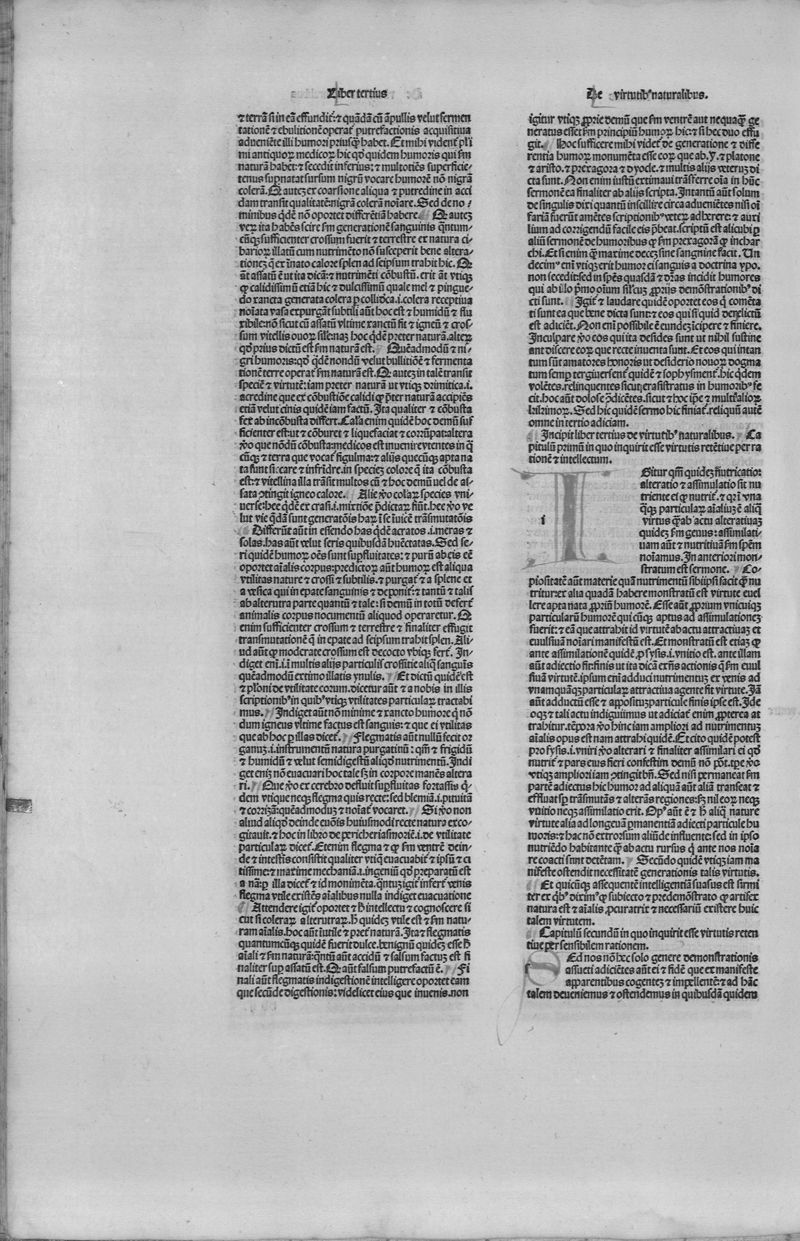 Liber tertius
& terrā si in eā effundit̉: & quādā cū āpullis velut fermen
tationē & ebulitionē operat̉ putrefactionis acquisitiua
adueniēte illi humori priusq̄ habet. Et mihi vident̉ pl'i
mi antiquioꝝ medicoꝝ hic qd̄ quidem humoris qui sm̄
naturā habet: & secedit inferius: & multotiēs superficie-
tenus supnatat sursum nigrū vocare humorē nō nigrā
colerā. Q autez ex coarsione aliqua & putredine in acci
dam transit qualitatē: nigrā colerā noīare. Sed de no-
minibus qdē nō oportet differētiā habere. Q autez
veꝝ ita habēs scire sm̄ generationē sanguinis q̄ntum-
cūqꝫ sufficienter crossum fuerit & terrestre ex natura ci-
barioꝝ illatū cum nutrimēto nō susceperit bene altera-
tionez q̄ ex īnato calore splen ad seipsum trahit hic. Q
aūt assatū ut ita dicā: & nutrimēti cōbustū. erit āt vtiqꝫ
q̄ calidissimū etiā hic & dulcissimū quale mel & pingue-
do xancta generata colera
noīata vasa expurgāt subtili aūt hoc est & humidū & flu
xibile: nō sicut cū assatū vltime xanctū fit & igneū & cros-
sum vitellis ouoꝝ sile: naꝫ hoc q̄dē preter naturā. alteꝝ
qd̄ prius dictū est sm̄ naturā est. Quēadmodū & ni-
gri humoris: qd̄ qdē nondū velut bullitiōē & fermenta
tionē terre operat̉ sm̄ naturā est. Q autez in talē transit
speciē & virtutē: iam preter naturā
acredine que ex cōbustiōe calidi q̄ p̄ter naturā accipiēs
etiā velut cinis quidē iam factū. Ita qualiter & cōbusta
fex ab incōbusta differt. enim quidē hoc demū suf
ficienter est: ut & cōburet & liquefaciat & corrūpat: altera
v̄o que nōdū cōbusta: medicos est inuenire vtentes in q̄
cūqꝫ & terra que vocat̉ figulina: & alijs quecūqꝫ apta na
ta sunt siccare & infrīdre. in speciez colore q̄ ita cōbusta
est: & vitellina illa trāsit multos cū & hoc demū uel de as-
sata ꝯtingit igneo calore. Alie v̄o colaꝝ species vni
uerse: hec qdē ex crassi
lut vie q̄dā sunt generatōis
Differūt aūt in essendo has q̄dē acratos .i. meras &
solas. has aūt velut seris quibusdā hūectatas. Sed se-
ri quidē humoꝝ oēs sunt supfluitates: & purū ab eis eē
oportet aīalis corpus: predictoꝝ aūt humoꝝ est aliqua
vtilitas nature & crossi & subtilis. & purgat̉ a splene et
a vesica qui in epate sanguinis & deponit̉: & tantū & talis
ab alterutra parte quantū & tale: si demū in totū deferet̉
animalis corpus nocumentū aliquod operaretur. Q
enim sufficienter crossum & terrestre & finaliter effugit
transmutationē q̄ in epate ad seipsum trahit splen. Ali-
ud aūt q̄ moderate crossum est decocto vbiqꝫ fert̉. In-
diget eni .i. in multis alijs particulis crossitie aliq̄ sanguis
quēadmodū extimo illatis ynulis. Et dictū quidē est
& platoni de vtilitate eorum. dicetur aūt & a nobis in illis
scriptionibꝰ in quibꝰ vtiqꝫ vtilitates particulaꝝ tractabi
mus. Indiget aūt nō minime & xancto humore q̄ nō
dum igneus vltime factus est sanguis: & que ei vtilitas
que ab hoc p illas dicet̉. Flegmatis aūt nullū fecit or
ganuꝫ .i. instrumentū natura purgatiuū: qm̄ & frigidū
& humidū & velut semidigestū aliqd̄ nutrimentū. Indi
get enīz nō euacuari hoc tale sꝫ in corpore manēs altera
ri. Que v̄o ex cerebro defluit supfluitas fortassis q̄-
dem vtique neqꝫ flegma quis recte: sed blemiā .i. pituitā
& corrizā: quēadmoduꝫ & noīat̉ vocaret. Si v̄o non
aliud aliqd̄ deinde euōis huiusmodi recte natura exco-
gitauit. & hoc in libro de pericheriasmoriē .i. de vtilitate
particulaꝝ dicet̉. Etenim flegma & q̄ sm̄ ventrē dein-
de & intestīs consistit qualiter vtiqꝫ euacuabit̉ & ipsū & ci
tissime: & maxime mechaniā .i. ingeniū qd̄ preparatū est
a nā: p illa dicet̉ & id monimēta. q̄ntuꝫ igit̉ infert̉ venis
flegma vtile existēs aīalibus nulla indiget euacuatione
Attendere igit̉ oportet & ħ intellectu & cognoscere si
cut si coleraꝝ alteruratꝝ. ħ quidez vtile est & sm̄ natu-
ram aīalis. hoc aūt īutile & p̄ter naturā. Ita & flegmatis
quantumcūqꝫ quidē fuerit dulce. benignū quidez esse ħ
aīali & sm̄ naturā: q̄ntū aūt accidū & salsum factuꝫ est fi
naliter sup assatū est. Q aūt falsum putrefactū ē. Fi
nali aūt flegmatis indigestionē intelligere oportet eam
que secūde digestionis: videlicet eius que inuenis. non
De virtutibꝰ naturalibus.
igitur vtiqꝫ ꝓprie demū que sm̄ ventrē aut nequaq̄ꝫ ge
neratus esset sm̄ principiū humoꝝ hic: & si hec duo effu
git. Hoc sufficere mihi videt̉ de generatione & diffe
rentia humoꝝ monumēta esse eoꝝ que ab .y. & platone
& aristo. & p̄rexagora & dyocle. & multis alijs veteruꝫ di
cta sunt. Non enim iustū extimaui trāsferre oīa in hūc
sermonē ea finaliter ab alijs scripta. In tantū aūt solum
de singulis dixi quantū instillire circa adueniētes nisi oī
fariā fuerūt amētes scriptionibꝰ veteꝝ adherere: & auxi
lium ad corrigendū facile eis p̄beat. scriptū est alicubi p
aliū sermonē de humoribus q̄ sm̄ prexagorā q̄ inchar
chi. Etsi enim q̄ maxime decez sine sangnine facit. Un
decimꝰ eni vtiqꝫ erit humor ei sanguis a doctrina ypo.
non secedit: sed in spēs quasdā & drīas incidit humores
qui ab illo p̄mo oīum sil' cuꝫ ꝓprijs demōstrationibꝰ di
cti sunt. Igit̉ & laudare quidē oportet eos q̄ comēta
ti sunt ea que bene dicta sunt: & eos qui siquid derelictū
est adiciēt. Non eni possibile ē eundez īcipere & finiere.
Inculpare v̄o eos qui ita desides sunt ut nihil sustine
ant discere eoꝝ que recte inuenta sunt. Et eos qui intan
tum sūt amatores honoris ut desiderio nouoꝝ dogma
tum semp tergiuersent̉ quidē & sophysment̉. hic qdem
volētes. relinquentes sicut: erasistratus in humoribꝰ fe
cit. hoc aūt dolose ꝯdicētes. sicut & hoc ip̄e & multi alioꝝ
. Sed hic quidē sermo hic finiat̉. reliquū autē
omne in tertio adiciam.
Incipit liber tertius de virtutibꝰ naturalibus. Ca
pitulū primū in quo inquirit esse virtutis retētiue per ra
tionē & intellectum.
Igitur qm̄ quidez nutricatio:
alteratio & assimulatio sit nu
triente ei q̄ nutrit̉. & qr̄ vna
q̄qꝫ particulaꝝ aīaliuꝫ ē aliq̄
virtus q̄ ab actu alteratiuaꝫ
quidez sm̄ genus: assimilati-
uam aūt & nutritiuā sm̄ spēm
noīamus. In anteriori mon-
stratum est sermone. Co-
piositatē aūt materie quā nutrimentū sibiipsi facit q̄ nu
tritur: ex alia quadā habere monstratū est virtute euel
lere apta nata ꝓpriū humorē. Esse aūt ꝓprium vnicuiqꝫ
particularū humorē qui cūqꝫ aptus ad assimulationez
fuerit: & eū que attrahit id virtutē ab actu attractiuaꝫ et
euulsiuā noīari manifestū est. Et monstratū est etiaꝫ q̄
ante assimilationē quidē. psysis .i. vnitio est. ante illam
aūt adiectio fit: finis ut ita dicā exn̄s actionis q̄ sm̄ euul
siuā virtutē. ipsum eni adduci nutrimentuꝫ ex venis ad
vnamquāqꝫ particulaꝝ attractiua agente fit virtute. Iā
aūt adductū esse & appositum particule finis ipse est. Ide
oqꝫ & tali actu indiguimus ut adiciat̉ enim ꝓpterea at
trahitur. tēpora v̄o hinc iam ampliori ad nutrimentuꝫ
aīalis opus est nam attrahi quidē. Et cito quidē potest
pro fysis .i. vniri v̄o alterari & finaliter assimilari ei qd̄
nutrit̉ & pars eius fieri confestim demū nō pōt. tp̄e v̄o
vtiqꝫ ampliori iam ꝯtingit bn̄. Sed nisi permaneat sm̄
partē adiectus hic humor ad aliquā aūt aliā transeat &
effluat sp̄ trāsmutās & alterās regiones: sꝫ nil eoꝝ neqꝫ
vnitio neqꝫ assimilatio erit. Opꝰ aūt ē & ħ aliq̄ nature
virtute alia ad longeuā pmanentiā adiecti particule hu
moris: & hac nō extrorsum aliūde influente: sed in ipso
nutriēdo habitante q̄ ab actu rursus q̄ ante nos noīa
re coacti sunt detētam. Secūdo quidē vtiqꝫ iam ma
nifeste ostendit necessitatē generationis talis virtutis.
Et quicūqꝫ assequentē intelligentiā suasus est firmi
ter ex q̄bꝰ diximꝰ q̄ subiecto & predemōstrato q̄ artifex
natura est & aīalis ꝓcuratrix & necessariū existere huic
talem virtutem.
Capitulū secundū in quo inquirit esse virtutis reten
tiue per sensibilem rationem.
Sed nos nō hec solo genere demonstrationis
assueti adiciētes aūt ei & fidē que ex manifeste
apparentibus cogentez & impellentē: & ad hāc
talem deueniemus & ostendemus in quibusdā quidem